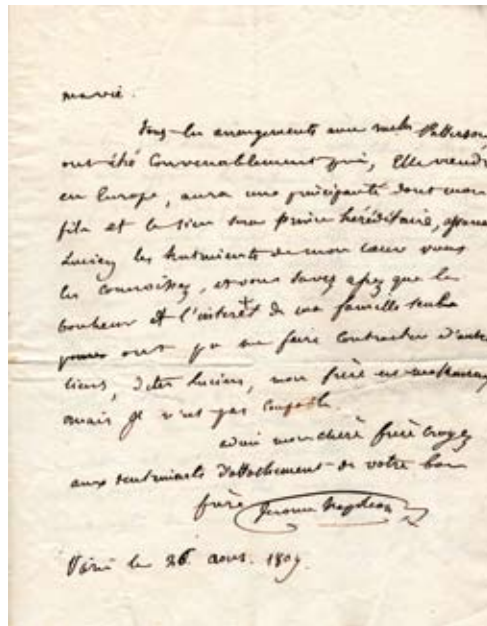 ma vie.
tous les arrangements avec melle Patterson
ont été Convenablement pris, Elle viendra
en Europe, aura une principauté dont mon
fils et le sien sera prince héréditaire,
Lucien les sentiments de mon cœur vous
les connoissez, et vous savez que le
bonheur et l'interêt de ma famille seuls
ont pu me faire Contracter d'autres
liens, Lucien, mon frère
mais je n'est pas Coupable.
adieu mon cher frère croyez
aux sentiments d'attachement de votre bon
frère Jerome Napoleon
le 26. aout. 1809.